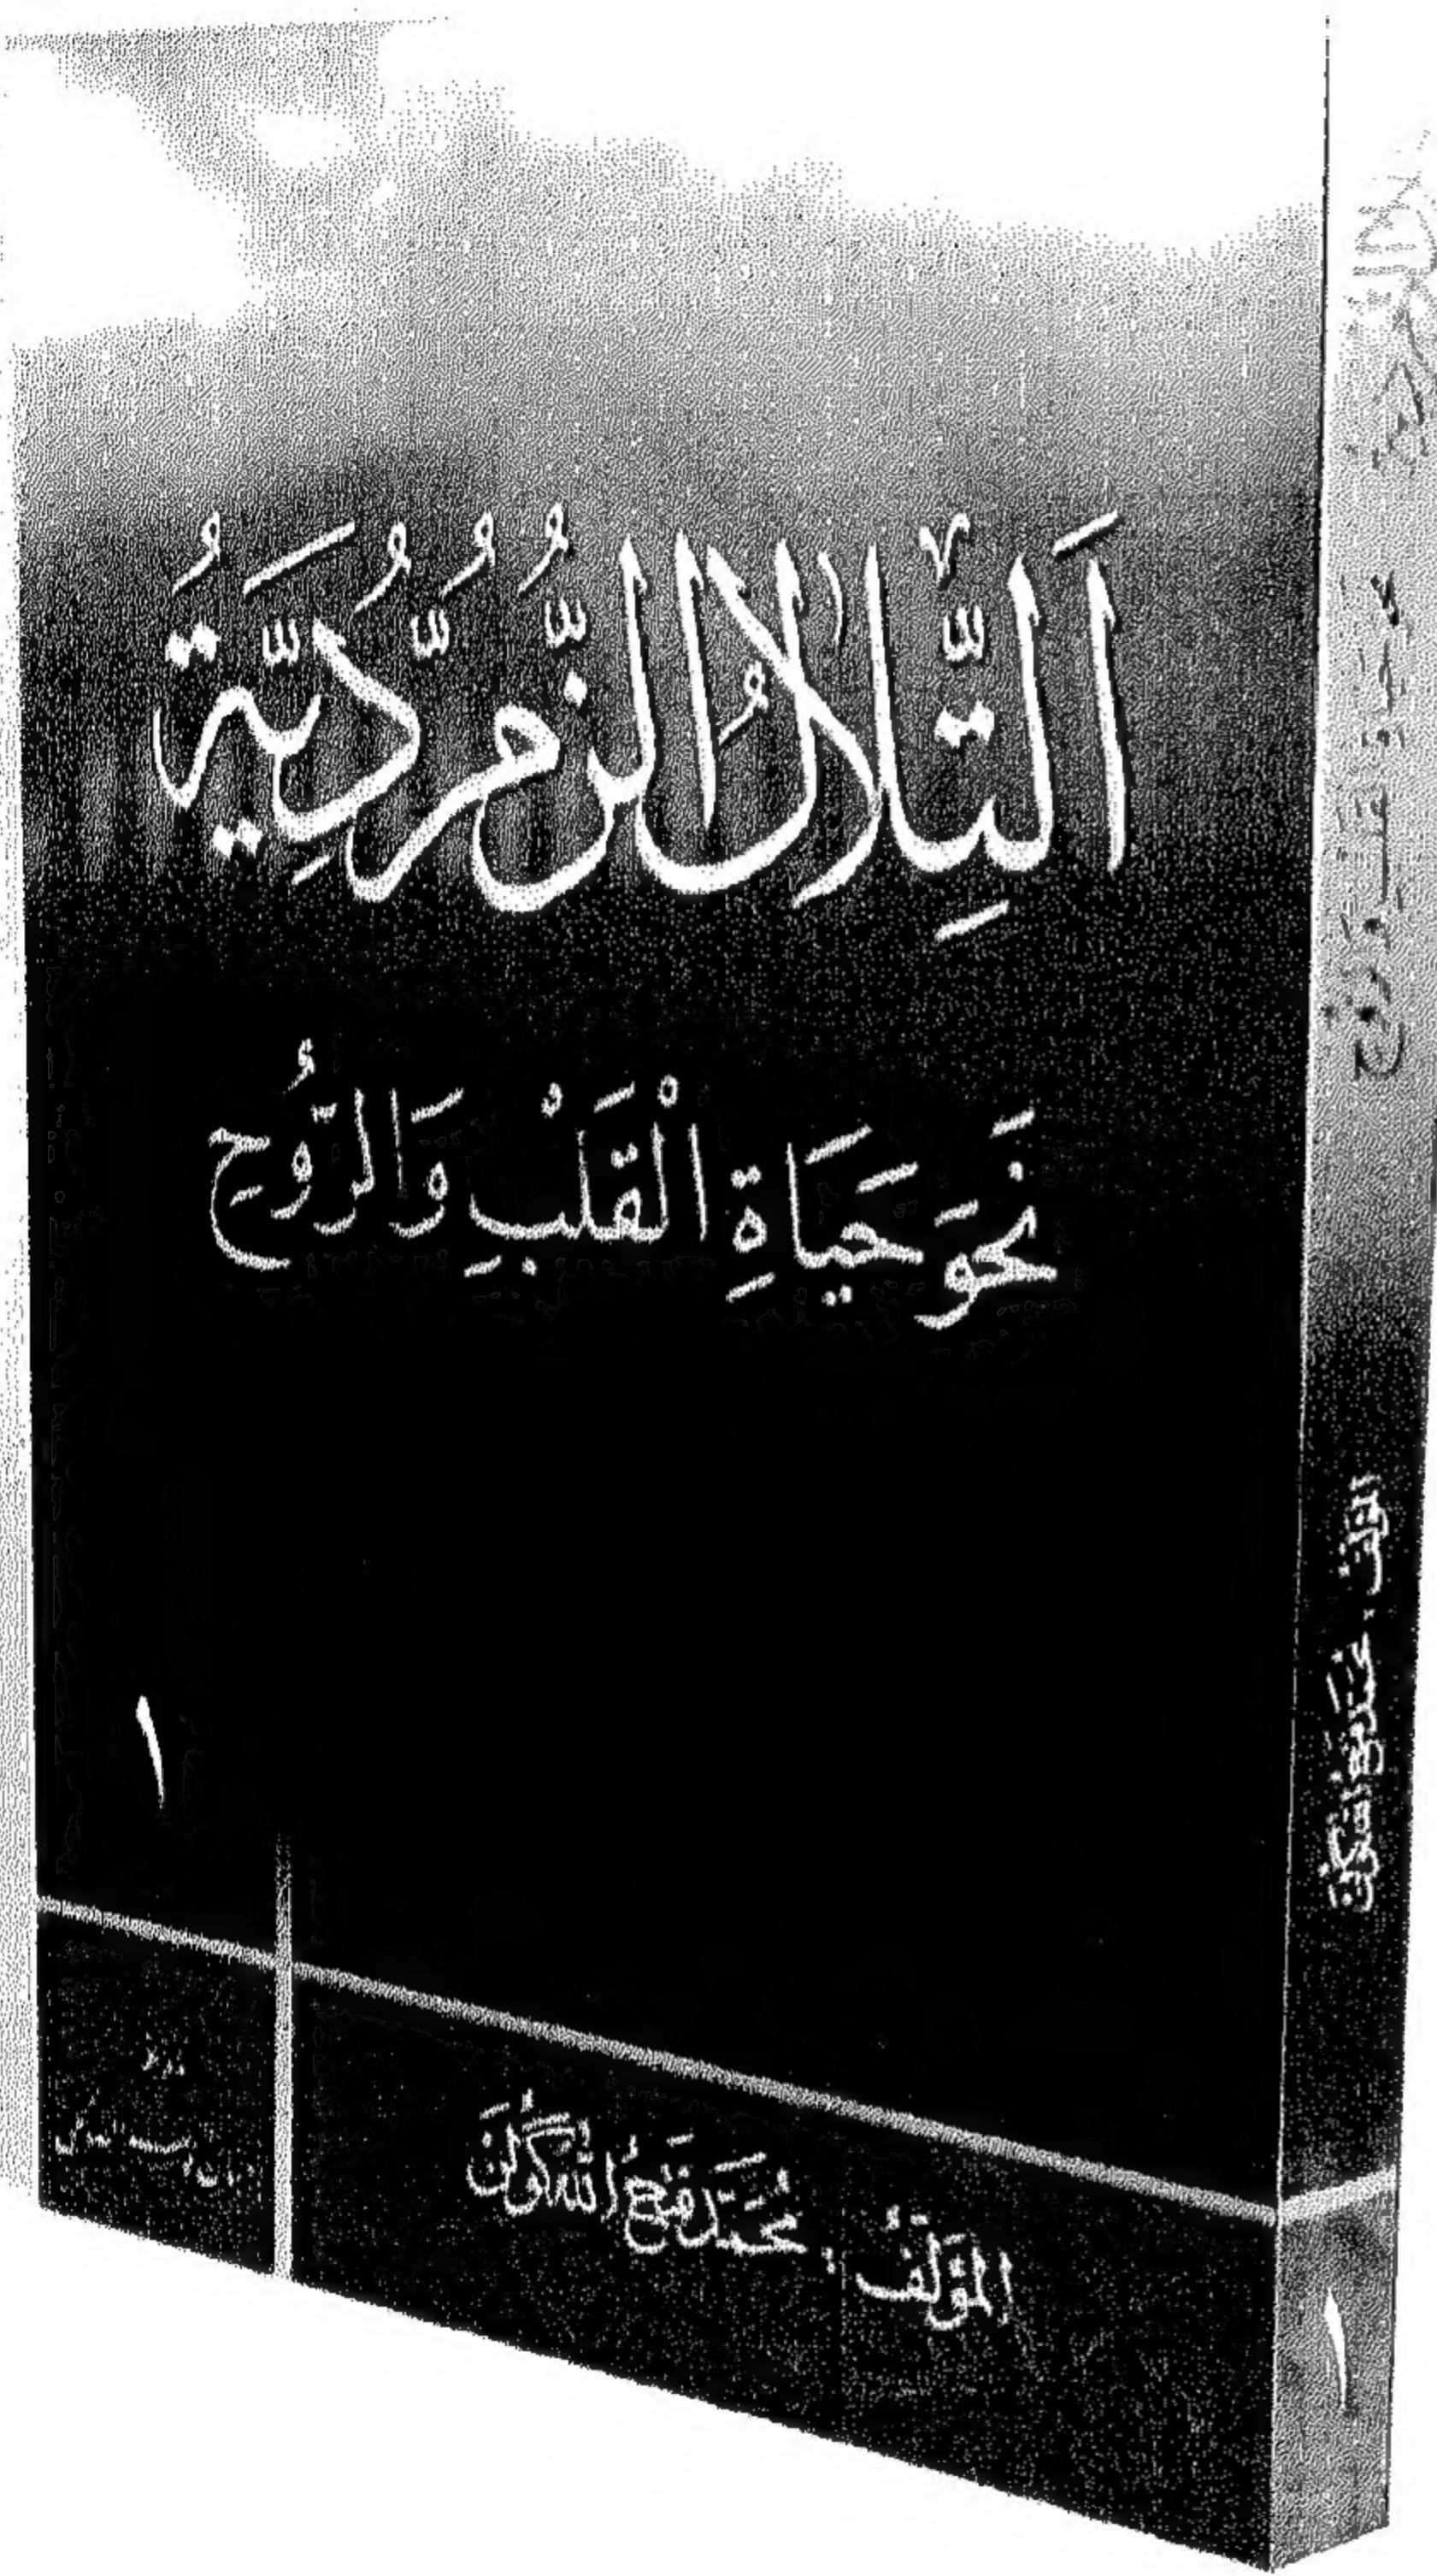 اَلتِّلَالُ الزُّمُرُّدِيَّةُ
نَحْوَ حَيَاةِ الْقَلْبِ وَالرُّوحِ
١
المُؤَلِّفُ: مُحَمَّد فَتْحُ اللّٰه كُولَن
المؤلف: محمد فتح الله كولن
١